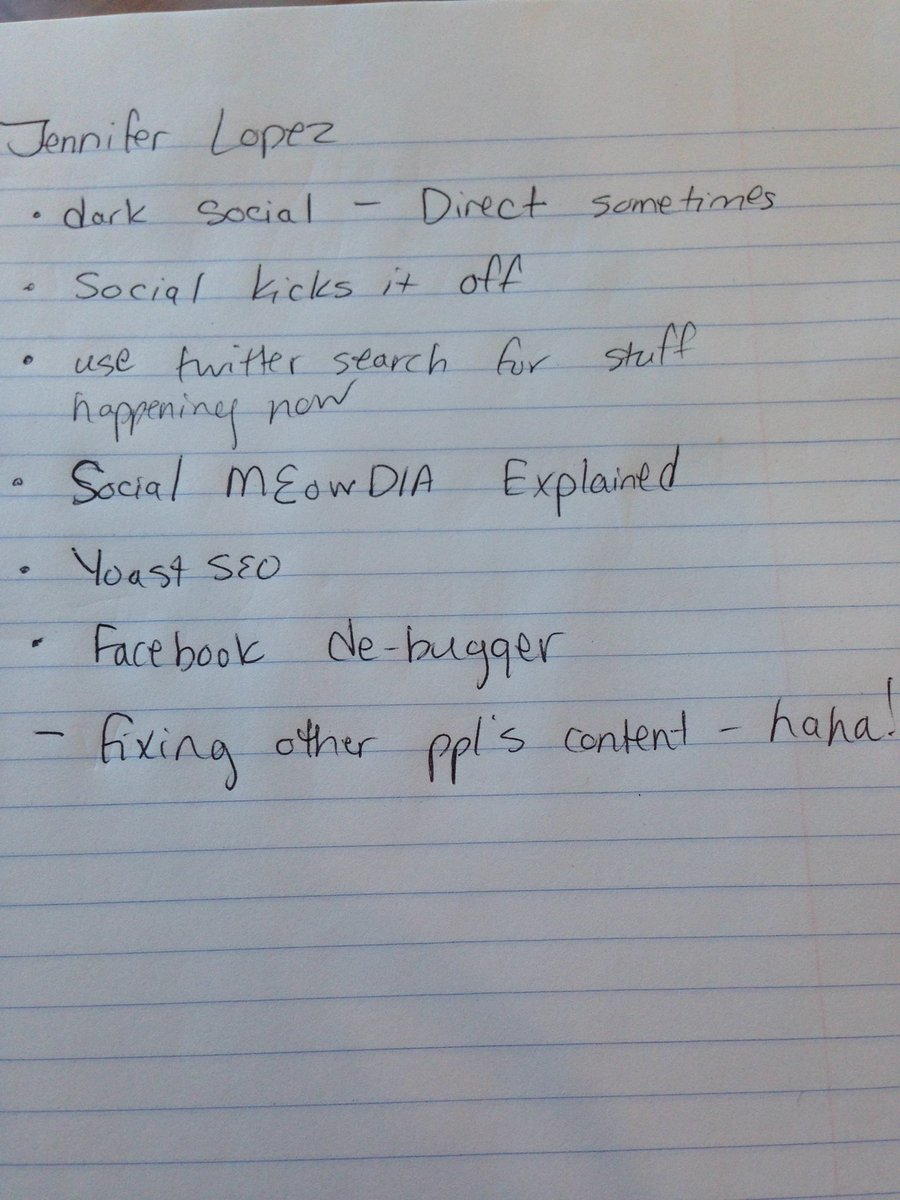 Jennifer Lopez
• dark social - Direct sometimes
• Social kicks it off
• use twitter search for stuff
happening now
• Social MEowDIA Explained
• Yoast SEO
• Facebook de-bugger
- fixing other ppl's content - haha!